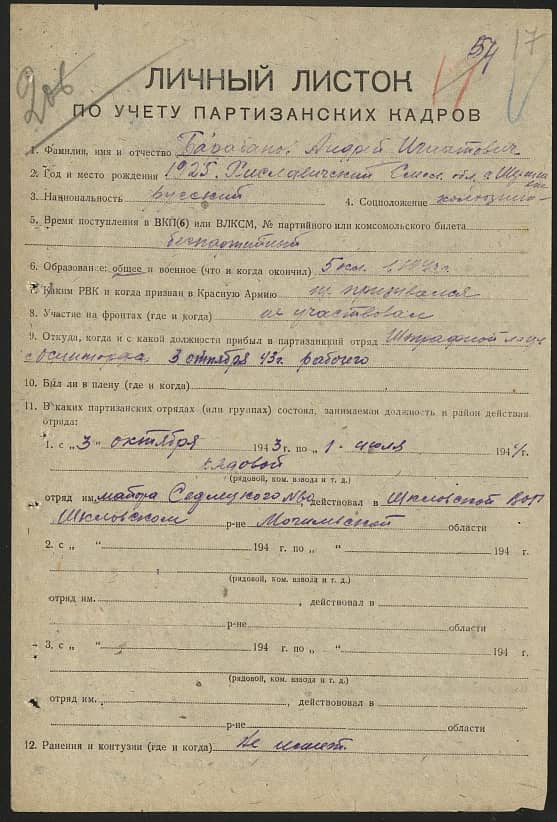 54
17
ЛИЧНЫЙ ЛИСТОК
ПО УЧЕТУ ПАРТИЗАНСКИХ КАДРОВ
1. Фамилия, имя и отчество Андрей Игнатович
2. Год и место рождения 1925. Хиславичский Смол. обл.
3. Национальность русский 4. Соцположение
5. Время поступления в ВКП(б) или ВЛКСМ, № партийного или комсомольского билета
беспартийный
6. Образование: общее и военное (что и когда окончил) 5 кл.
7. Каким РВК и когда призван в Красную Армию не призывался
8. Участие на фронтах (где и когда) не участвовал
9. Откуда, когда и с какой должности прибыл в партизанский отряд Штрафной лагерь
3 октября 43 г. рабочего
10. Был ли в плену (где и когда)
11. В каких партизанских отрядах (или группах) состоял, занимаемая должность и район действия
отряда:
1. с „ 3 " октября 1943 г. по „ 1 " июля 1944 г.
рядовой
(рядовой, ком. взвода и т. д.)
отряд им. майора Седлецкого, действовал в Шкловской ВОГ
Шкловском р-не Могилевской области
2. с „ " 194 г. по „ " 194 г.
(рядовой, ком. взвода и т. д.)
отряд им. , действовал в
р-не области
3. с „ " 194 г. по „ " 194 г.
(рядовой, ком. взвода и т. д.)
отряд им. , действововал в
р-не области
12. Ранения и контузии (где и когда) не имеет